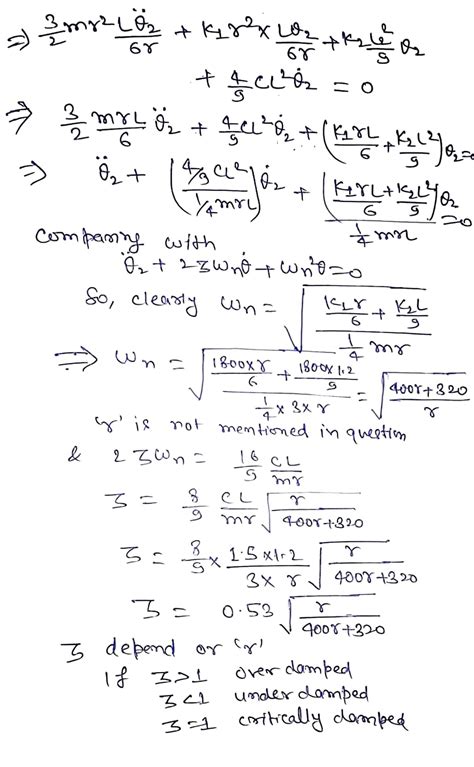 ⇒ 3/2 mr² Lθ̈₂/6r + K₁r² × Lθ₂/6r + K₂ L²/9 θ₂
+ 4/9 CL² θ̇₂ = 0
⇒ 3/2 mrL/6 θ̈₂ + 4/9 CL² θ̇₂ + (K₁rL/6 + K₂L²/9) θ₂ = 0
⇒ θ̈₂ + (4/9 CL² / 1/4 mrL) θ̇₂ + (K₁rL/6 + K₂L²/9)θ₂ / 1/4 mrL = 0
Comparing with
θ̈₂ + 2ζωnθ̇ + ωn²θ = 0
So, clearly ωn = √((K₁r/6 + K₂L/9) / (1/4 mr))
⇒ ωn = √((1800×r/6 + 1800×1.2/9) / (1/4 × 3 × r)) = √((400r+320)/r)
'r' is not mentioned in question
& 2ζωn = 16/9 CL/mr
ζ = 8/9 CL/mr √(r/(400r+320))
ζ = 8/9 × (1.5×1.2)/(3×r) √(r/(400r+320))
ζ = 0.53 √(r/(400r+320))
ζ depend or 'r'
If ζ>1 over damped
ζ<1 under damped
ζ=1 critically damped